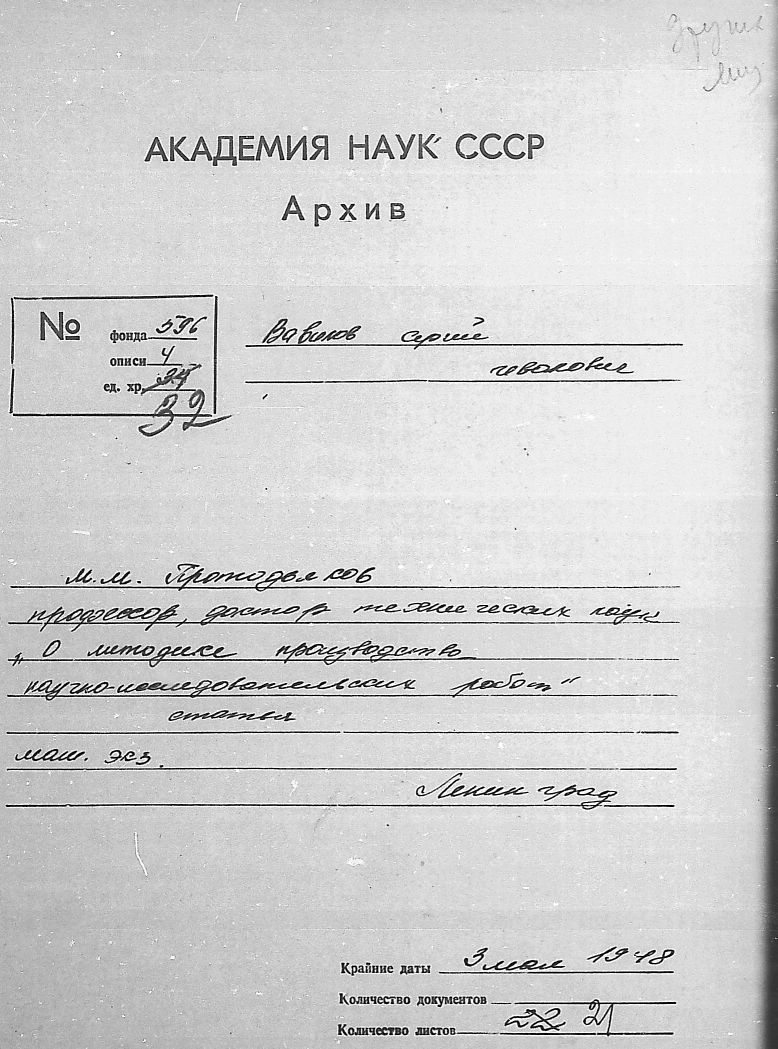 других
лиц
АКАДЕМИЯ НАУК СССР
Архив
№
фонда 596
описи 4
ед. хр.
32
Вавилов Сергей
Иванович
М.М. Протодьяков
профессор, доктор технических наук
„О методике производства
научно-исследовательских работ"
статья
маш. экз.
Ленинград
Крайние даты 3 мая 1948
Количество документов
Количество листов 22 21